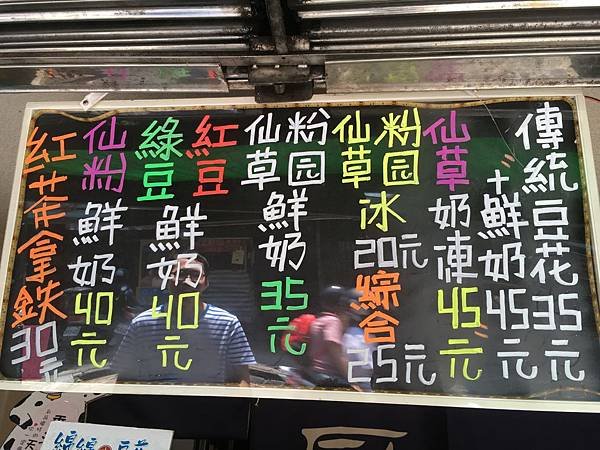 傳統豆花35元
+鮮奶45元
仙草奶凍45元
粉园
仙草
冰
20元
綜合
25元
粉园
仙草
鮮奶
35元
紅豆
綠豆
鮮奶
40元
仙粉鮮奶40元
紅茶拿鉄30元
綿綿
豆花